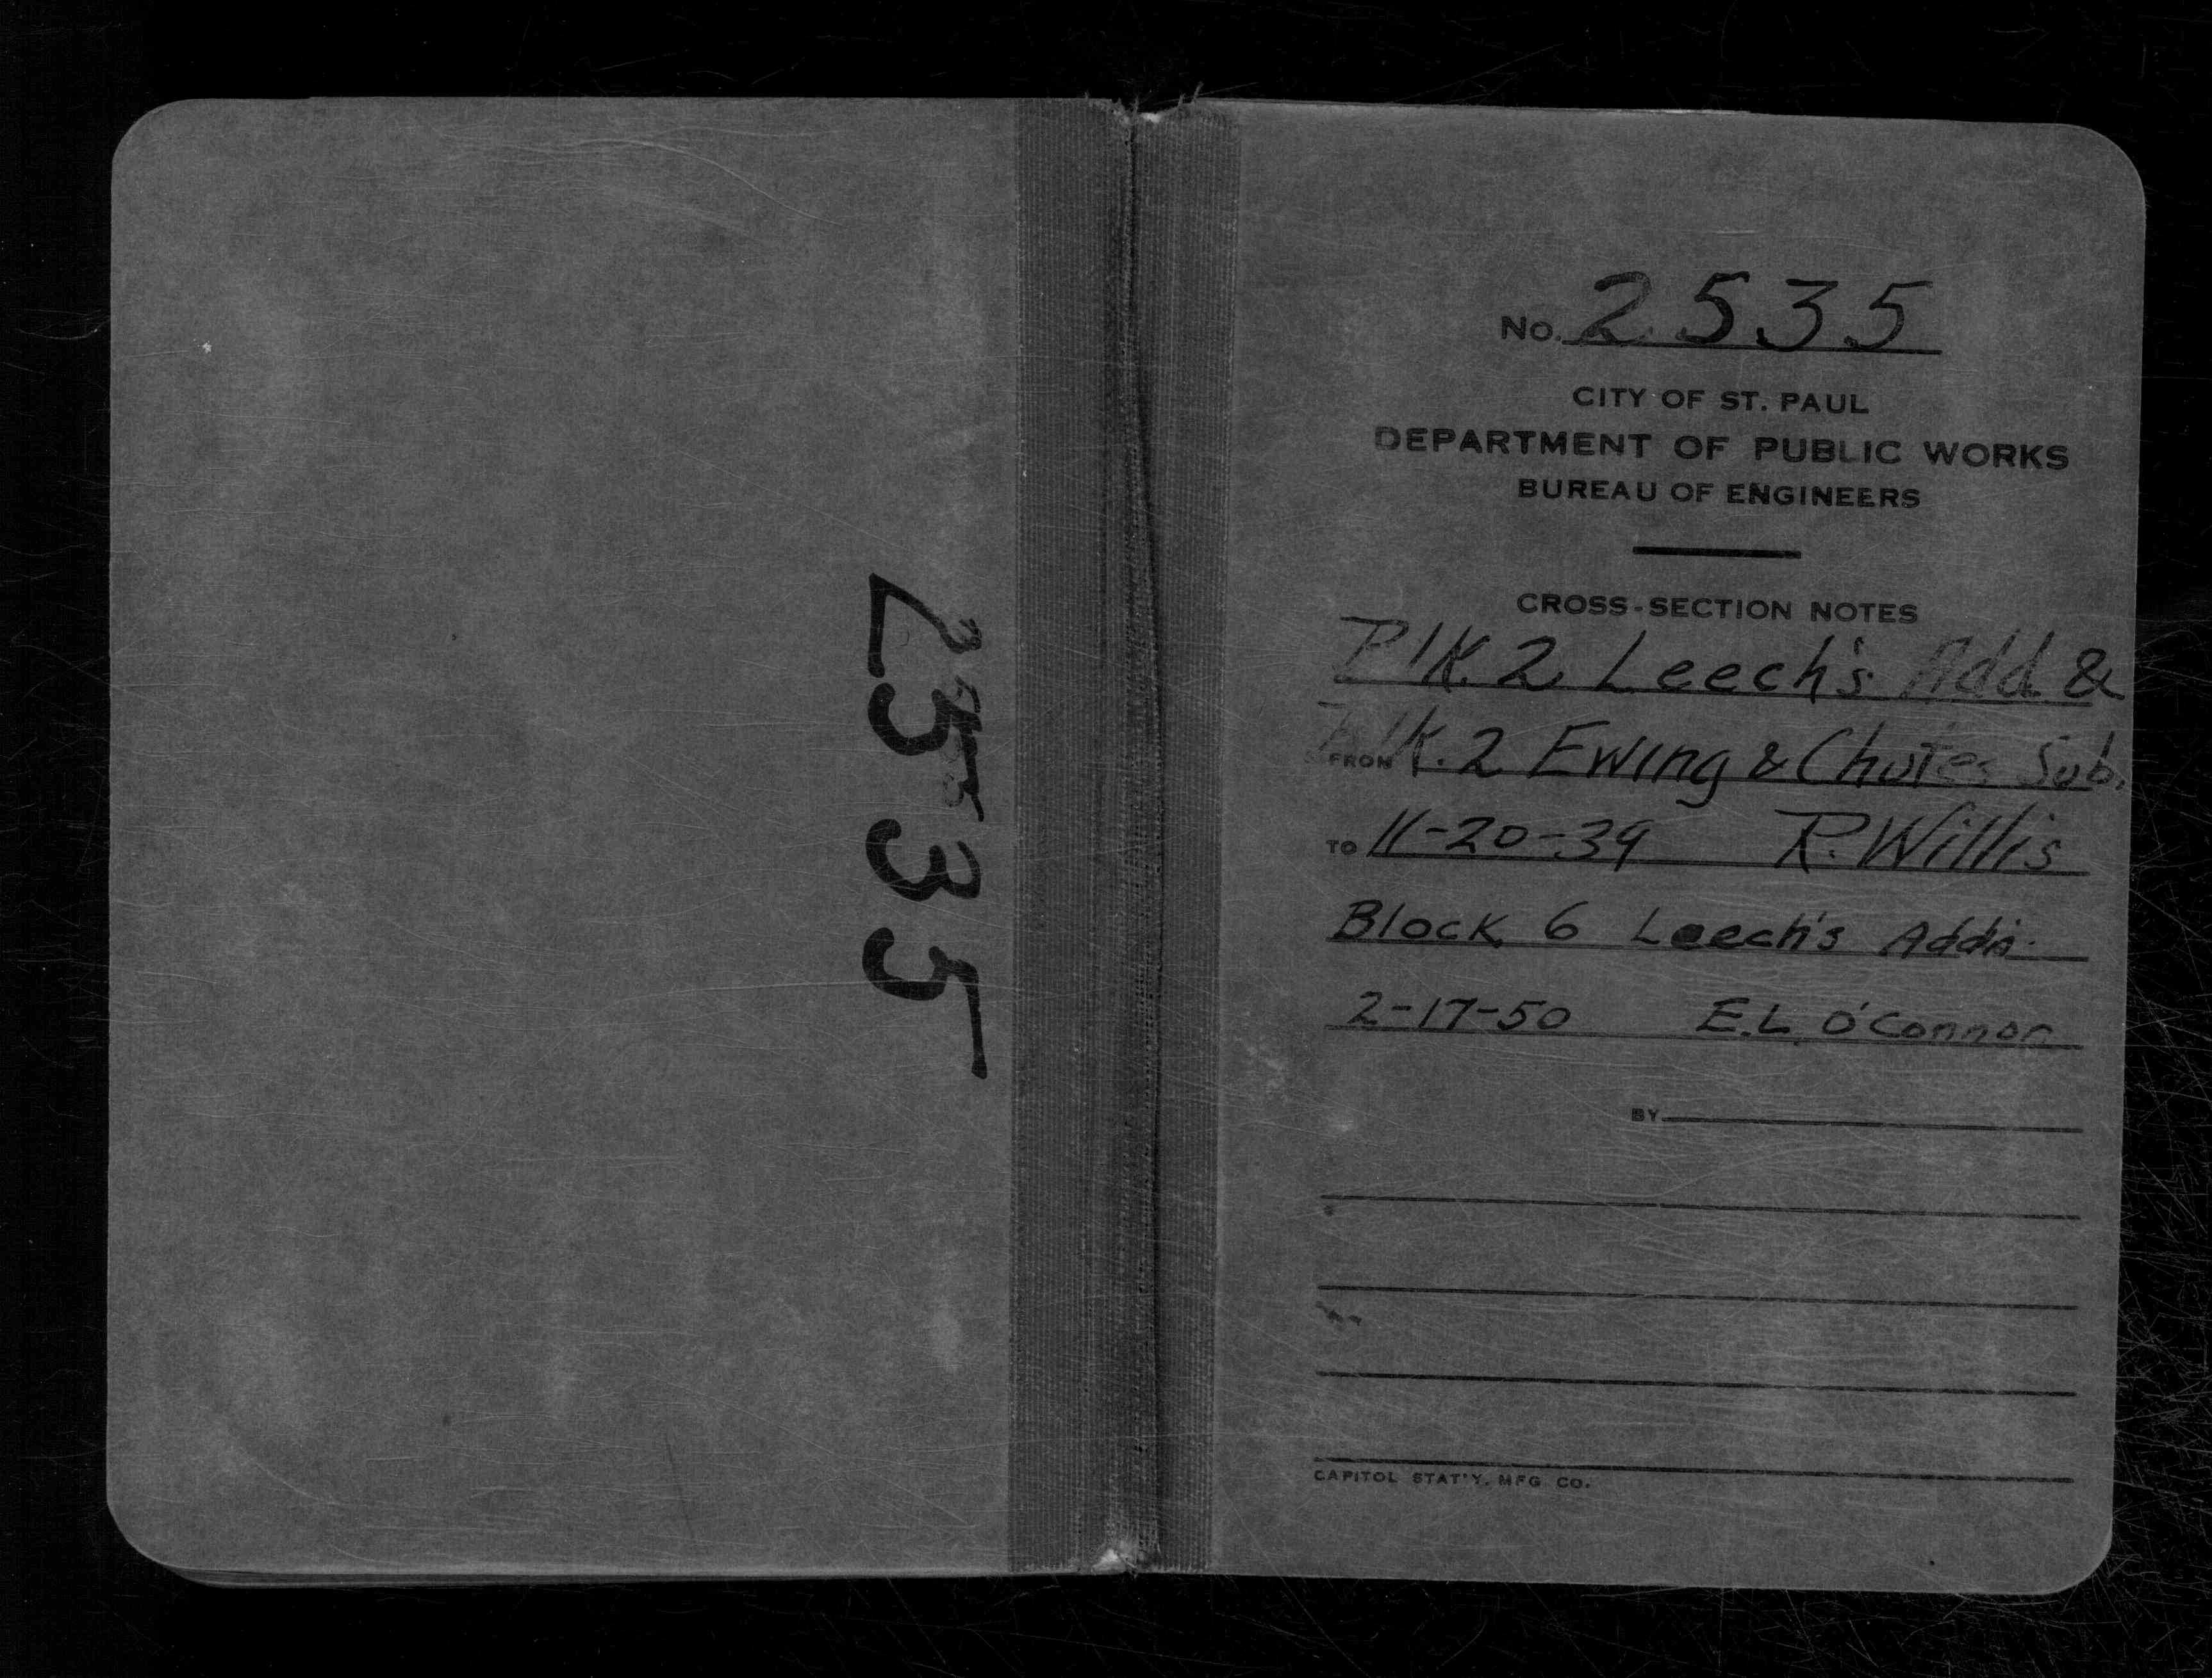 2535
No. 2535
CITY OF ST. PAUL
DEPARTMENT OF PUBLIC WORKS
BUREAU OF ENGINEERS
CROSS-SECTION NOTES
Blk. 2 Leech's Add &
FROM Blk. 2 Ewing & Chutes Sub.
TO 11-20-39 R. Willis
Block 6 Leech's Addn.
2-17-50 E.L. O'Connor
BY
CAPITOL STAT'Y. MFG CO.